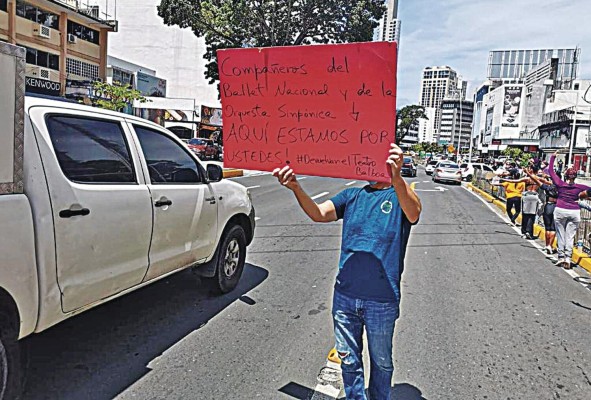 KENWOOD
Compañeros del
Ballet Nacional y de la
Orquesta Sinfónica y
AQUÍ ESTAMOS POR
USTEDES! #DevuelvanelTeatro
Balboa